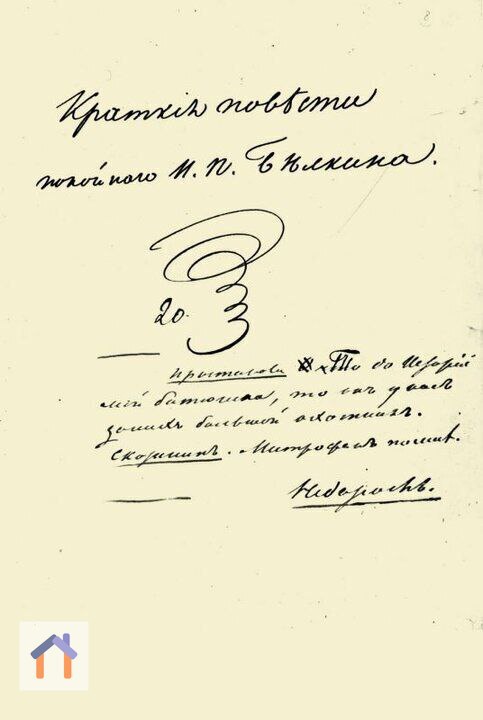 Краткія повѣсти
покойнаго И. П. Бѣлкина.
20.
Простакова То до Исторій
мой батюшка, то онъ у насъ
большой охотникъ.
Скотининъ. Митрофанъ по мнѣ.
Недоросль.